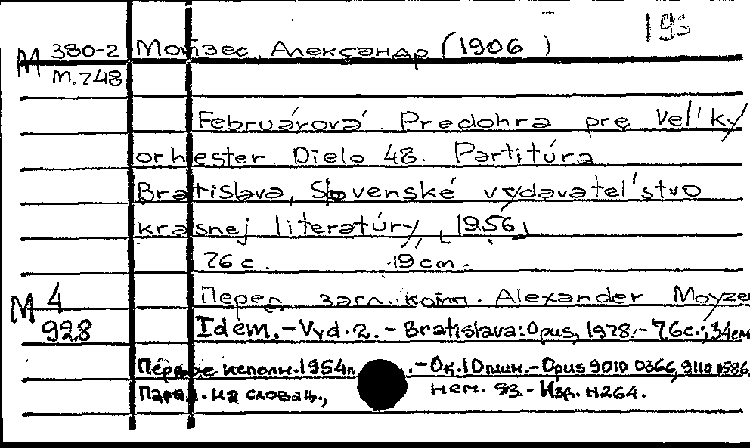 193
М 380-2 Мойзес, Александр (1906 )
м.248
Februárová Predohra pre Vel'ký
orhester Dielo 48. Partitúra
Bratislava, Slovenské vydavatel'stvo
krasnej literatúry, [1956]
76 с. 19 cm.
М 4 Перед загл. комп. Alexander Moyze
928 Idem. - Vyd. 2. - Bratislava: Opus, 1978. - 76c.; 34cm
Первое исполн. 1954г. - Ок. 10 мин. - Opus 9010 0366, 9110 0586
Парал. на словац., нем. яз. - Изд. H264.